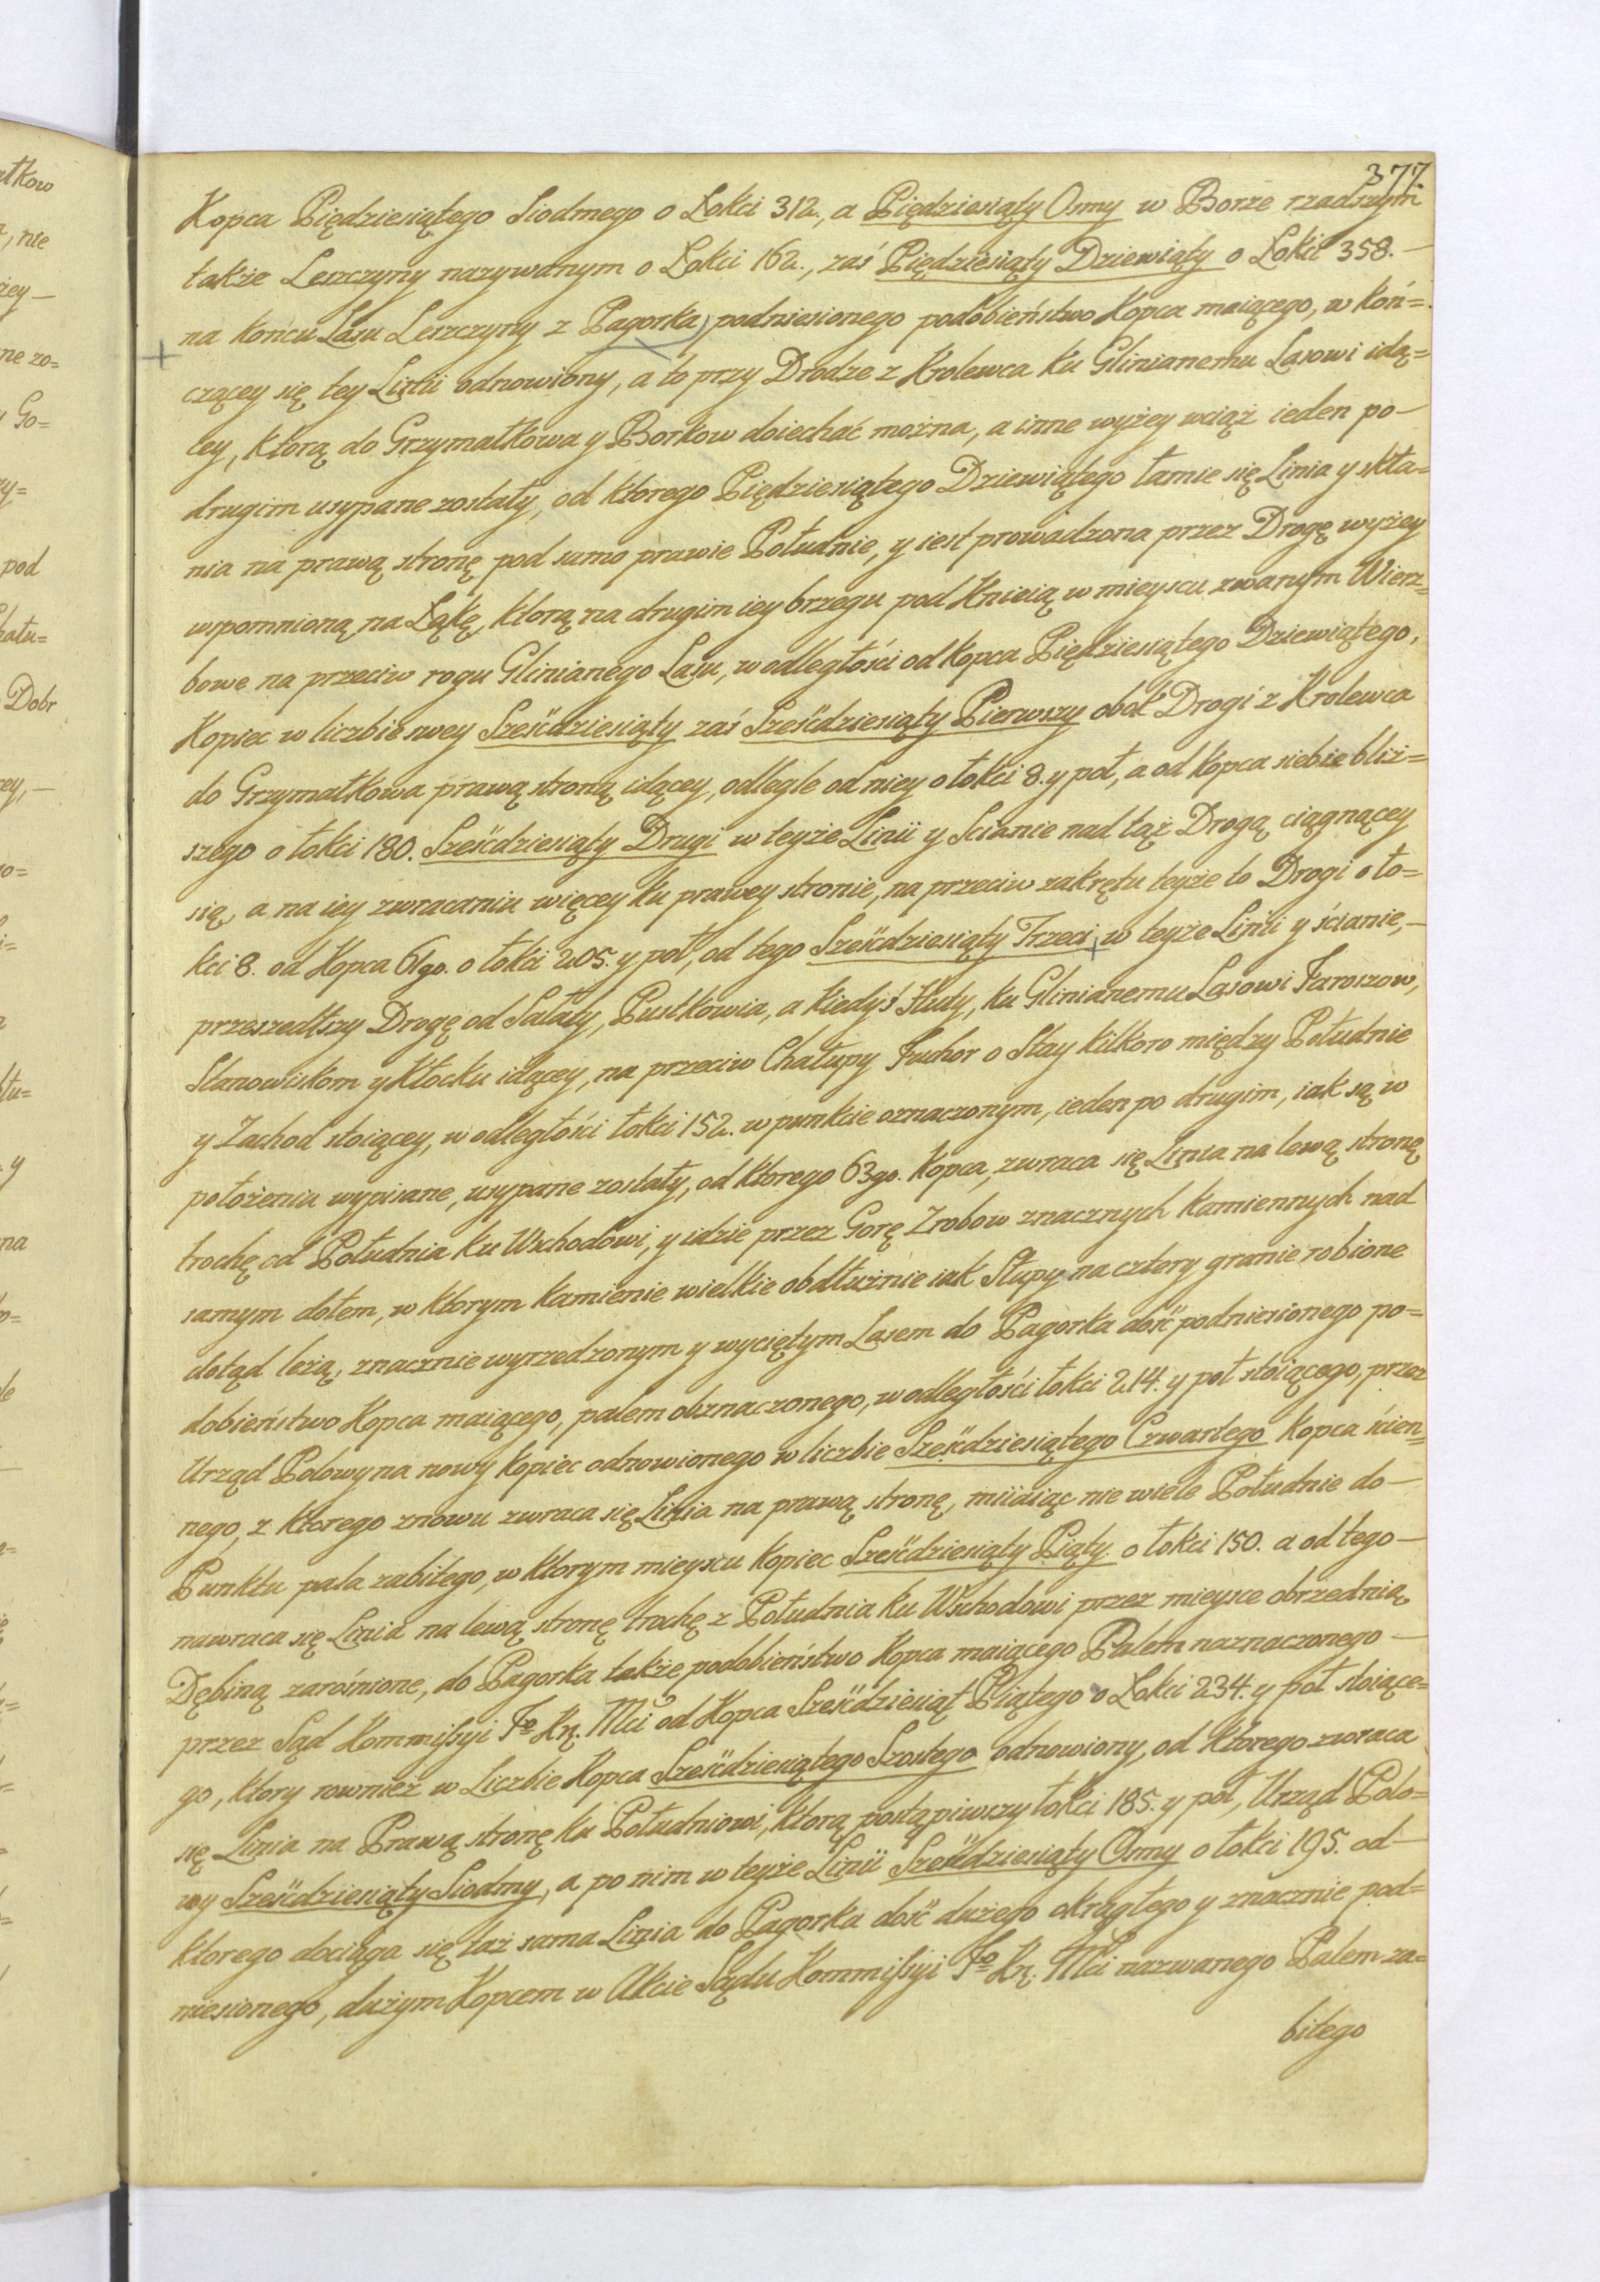 377
Kopca Piędziesiątego Siodmego o Łokci 312., a Piędziesiąty Osmy w Borze rzadszym
także Leszczyny nazywanym o Łokci 162., zaś Piędziesiąty Dziewiąty o Łokci 358.—
na końcu Lasu Leszczyny z Pagorka podniesionego podobieństwo Kopca maiącego, w koń=
czącey się tey Linii odnowiony, a to przy Drodze z Krolewca ku Glinianemu Lasowi idą=
cey, ktorą do Grzymałkowa y Borkow doiechać można, a inne wyżey wciąż ieden po—
drugim usypane zostały, od ktorego Piędziesiątego Dziewiątego łamie się Linia y skła=
nia na prawą stronę pod samo prawie Południe, y iest prowadzona przez Drogę wyżey
wspomnioną na Łąkę, ktorą na drugim iey brzegu pod Knieią w mieyscu zwanym Wierz=
bowe na przeciw rogu Glinianego Lasu, w odległości od Kopca Piędziesiątego Dziewiątego,
Kopiec w liczbie swey Sześćdziesiąty zaś Sześćdziesiąty Pierwszy obok Drogi z Krolewca
do Grzymałkowa prawą stroną idącey, odległe od niey o łokci 8. y poł, a od kopca siebie bliż=
szego o łokci 180. Sześćdziesiąty Drugi w teyże Linii y Scianie nad taż Drogą ciągnącey
się, a na iey zwracaniu więcey ku prawey stronie, na przeciw zakrętu teyże to Drogi o ło=
kci 8. od Kopca 61go. o łokci 205. y poł, od tego Sześćdziesiąty Trzeci w teyże Linii y ścianie,—
przeszedłszy Drogę od Sałaty, Pustkowia, a kiedyś Hudy, ku Glinianemu Lasowi Jaroszow,
Stanowiskom y Kłocku idącey, na przeciw Chałupy Juchor o Stay kilkoro między Południe
y Zachod stoiącey, w odległości łokci 152. w punkcie oznaczonym, ieden po drugim, iak są w
położeniu wypisane, usypane zostały, od ktorego 63go. Kopca, zwraca się Linia na lewą stronę
trochę od Południa ku Wschodowi, y idzie przez Gorę Zrobow znacznych kamiennych nad
samym dołem, w ktorym kamienie wielkie obdłużnie iak Słupy na cztery granie robione
dotąd leżą, znacznie wyrzedzonym y wyciętym Lasem do Pagorka dość podniesionego po=
dobieństwo Kopca maiącego, palem obznaczonego, w odległości łokci 214. y poł stoiącego, przez
Urząd Polowy na nowy kopiec odnowionego w liczbie Sześćdziesiątego Czwartego Kopca ścien=
nego, z ktorego znowu zwraca się Linia na prawą stronę, miiaiąc nie wiele Południe do—
Punktu pala zabitego, w ktorym mieyscu kopiec Sześćdziesiąty Piąty o łokci 150. a od tego—
nawraca się Linia na lewą stronę trochę z Południa ku Wschodowi przez mieysce obrzednią
Dębiną zarośnione, do Pagorka także podobieństwo Kopca maiącego Palem naznaczonego—
przez Sąd Kommissyi Jo Kr. Mci od Kopca Sześćdziesiąt Piątego o Łokci 234. y poł stoiące=
go, ktory rownież w Liczbie Kopca Sześćdziesiątego Szostego odnowiony, od ktorego zwraca
się Linia na Prawą stronę ku Południowi, ktorą postąpiwszy łokci 185. y poł, Urząd Polo=
wy Sześćdziesiąty Siodmy, a po nim w teyże Linii Sześćdziesiąty Osmy o łokci 195. od—
ktorego dociąga się taż sama Linia do Pagorka dość dużego okrągłego y znacznie pod=
niesionego, dużym Kopcem w Akcie Sądu Kommissyi Jo Kr. Mci nazwanego Palem za=
bitego